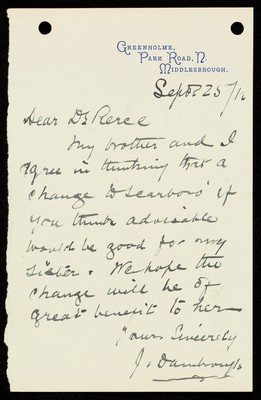 Greenholme,
Park Road, N.
Middlesbrough.
Sept 25/12
Dear Dr Pierce
My brother and I
agree in thinking that a
change to Scarboro' if
you think advisable
would be good for my
sister. We hope the
change will be of
great benefit to her
Yours Sincerely
J.